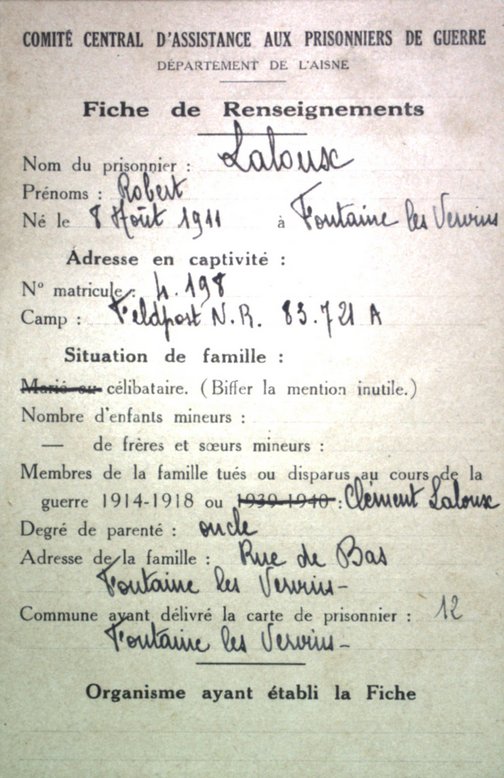 COMITÉ CENTRAL D'ASSISTANCE AUX PRISONNIERS DE GUERRE
DÉPARTEMENT DE L'AISNE
Fiche de Renseignements
Nom du prisonnier : Laloux
Prénoms : Robert
Né le 8 Août 1911 à Fontaine les Vervins
Adresse en captivité :
N° matricule : 4.198
Camp : Feldpost N.R. 83.721 A
Situation de famille :
Marié ou célibataire. (Biffer la mention inutile.)
Nombre d'enfants mineurs :
— de frères et sœurs mineurs :
Membres de la famille tués ou disparus au cours de la
guerre 1914-1918 ou 1939-1940 : Clément Laloux
Degré de parenté : oncle
Adresse de la famille : Rue de Bas
Fontaine les Vervins -
Commune ayant délivré la carte de prisonnier : 12
Fontaine les Vervins -
Organisme ayant établi la Fiche